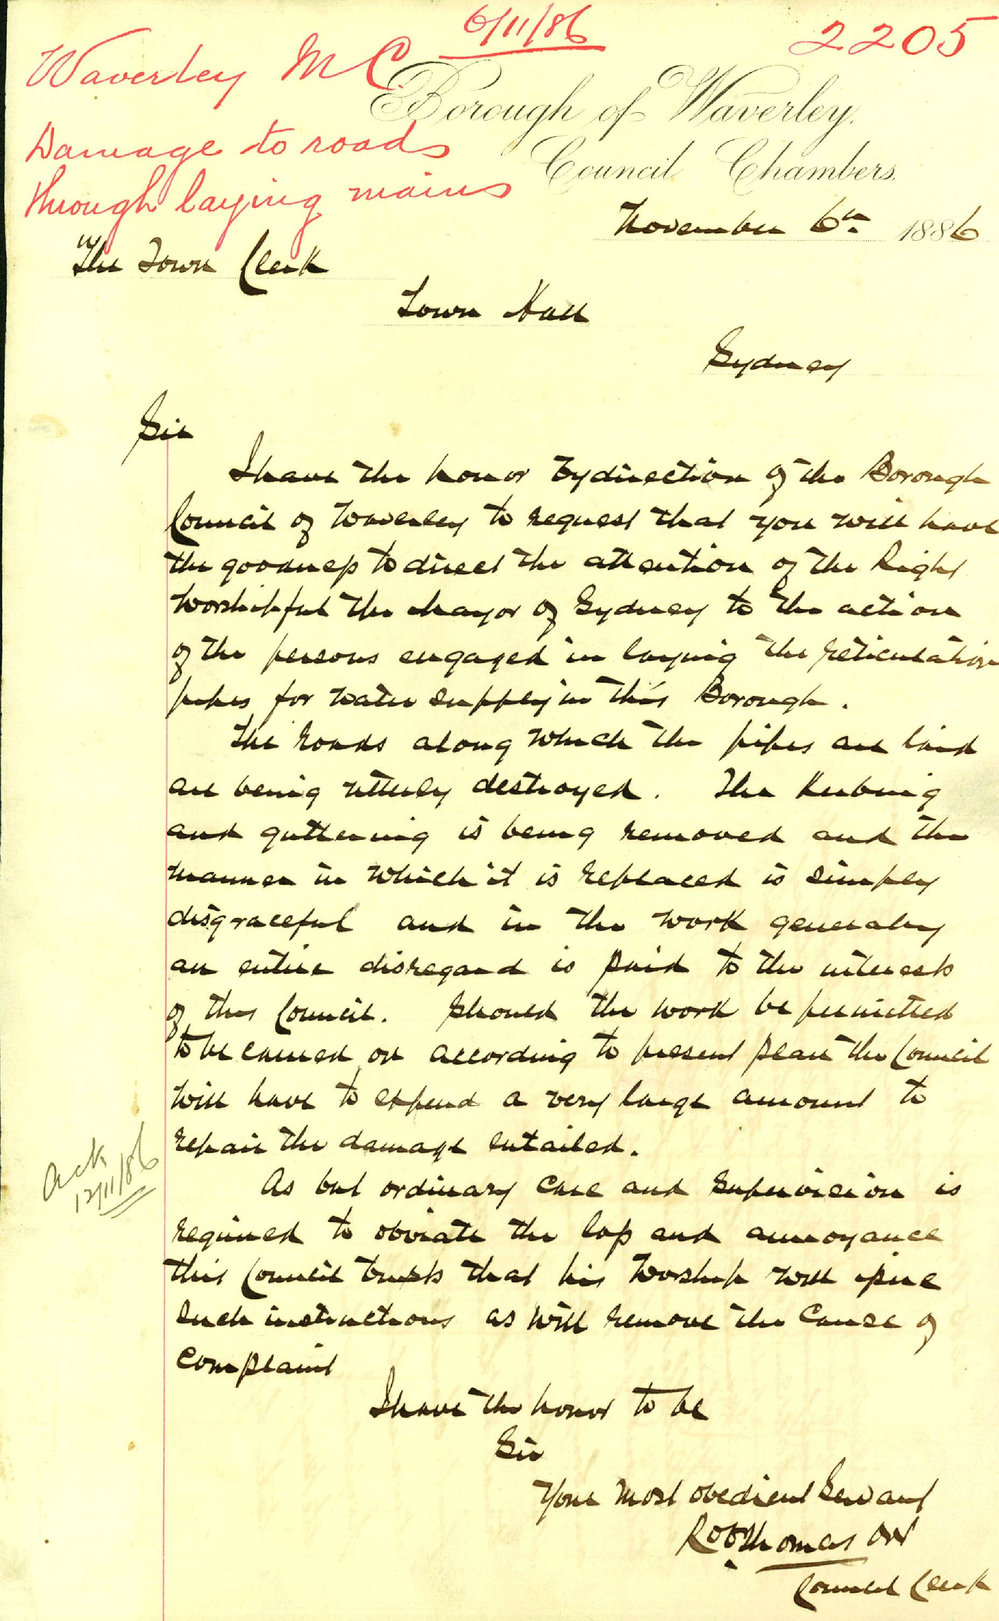 6/11/86
2205
Waverley M C
Borough of Waverley.
Damage to roads
Council Chambers.
through laying mains
November 6th 1886
The Town Clerk
Town Hall
Sydney
Sir
I have the honor by direction of the Borough
Council of Waverley to request that you will have
the goodness to direct the attention of the Right
Worshipful the Mayor of Sydney to the action
of the persons engaged in laying the reticulation
pipes for water supply in this Borough.
The roads along which the pipes are laid
are being utterly destroyed. The Kerbing
and guttering is being removed and the
manner in which it is replaced is simply
disgraceful and in the work generally
an entire disregard is paid to the interests
of this Council. Should the work be permitted
to be carried on according to present plan the Council
will have to expend a very large amount to
repair the damage entailed.
Ack
12/11/86
As but ordinary care and supervision is
required to obviate the loss and annoyance
this Council trusts that his Worship will give
such instructions as will remove the cause of
complaint
I have the honor to be
Sir
Your most obedient Servant
Robt Thomas
Council Clerk